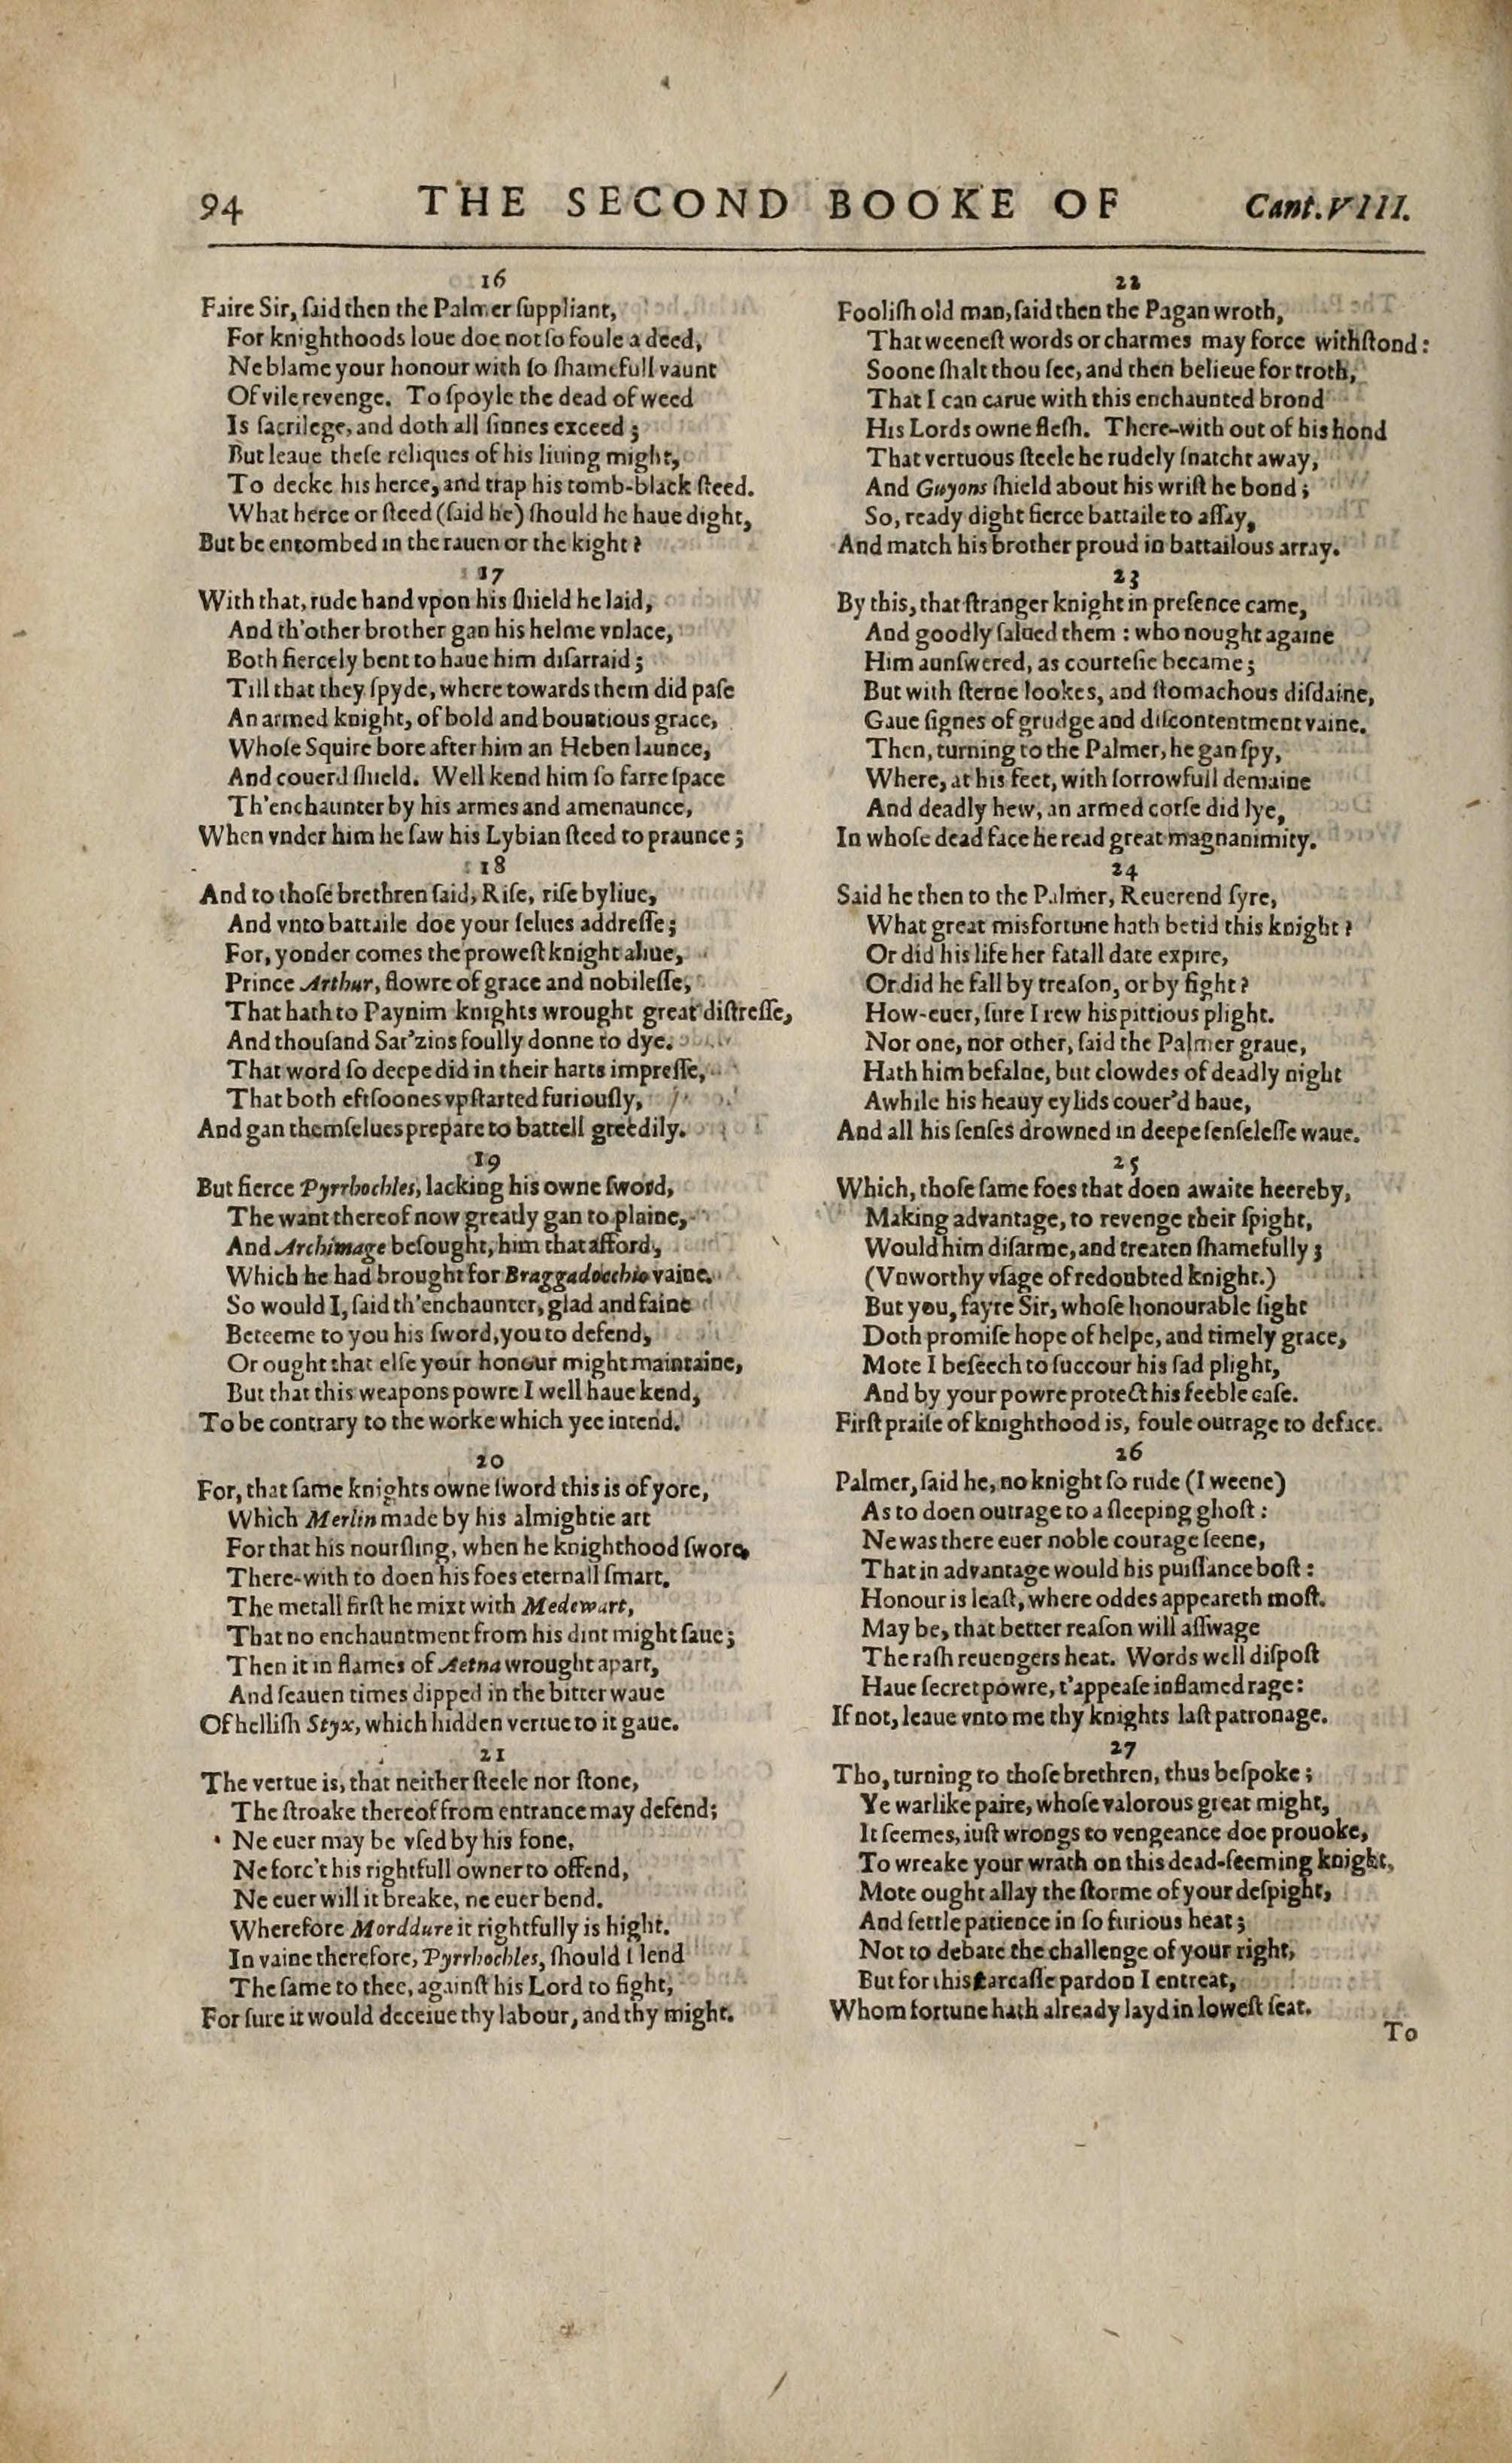 94 THE SECOND BOOKE OF Cant. VIII.
16
Faire Sir, ſaid then the Palmer ſuppliant,
For knighthoods loue doe not ſo foule a deed,
Ne blame your honour with ſo ſhamefull vaunt
Of vile revenge. To ſpoyle the dead of weed
Is ſacrilege, and doth all ſinnes exceed;
But leaue theſe reliques of his liuing might,
To decke his herce, and trap his tomb-black ſteed.
What herce or ſteed (ſaid he) ſhould he haue dight,
But be entombed in the rauen or the kight?
17
With that, rude hand vpon his ſhield he laid,
And th'other brother gan his helme vnlace,
Both fiercely bent to haue him diſarraid;
Till that they ſpyde, where towards them did paſe
An armed knight, of bold and bountious grace,
Whoſe Squire bore after him an Heben launce,
And couerd ſhield. Well kend him ſo farre ſpace
Th'enchaunter by his armes and amenaunce,
When vnder him he ſaw his Lybian ſteed to praunce;
18
And to thoſe brethren ſaid, Riſe, riſe byliue,
And vnto battaile doe your ſelues addreſſe;
For, yonder comes the proweſt knight aliue,
Prince Arthur, flowre of grace and nobileſſe,
That hath to Paynim knights wrought great diſtreſſe,
And thouſand Sar'zins foully donne to dye.
That word ſo deepe did in their harts impreſſe,
That both eftſoones vpſtarted furiouſly,
And gan themſelues prepare to battell greedily.
19
But fierce Pyrrhochles, lacking his owne ſword,
The want thereof now greatly gan to plaine,
And Archimage beſought, him that afford,
Which he had brought for Braggadocchio vaine.
So would I, ſaid th'enchaunter, glad and faine
Beteeme to you his ſword, you to defend,
Or ought that elſe your honour might maintaine,
But that this weapons powre I well haue kend,
To be contrary to the worke which yee intend.
20
For, that ſame knights owne ſword this is of yore,
Which Merlin made by his almightie art
For that his nourſling, when he knighthood ſwore,
There-with to doen his foes eternall ſmart.
The metall firſt he mixt with Medewart,
That no enchauntment from his dint might ſaue;
Then it in flames of Aetna wrought apart,
And ſeauen times dipped in the bitter waue
Of helliſh Styx, which hidden vertue to it gaue.
21
The vertue is, that neither ſteele nor ſtone,
The ſtroake thereof from entrance may defend;
Ne euer may be vſed by his fone,
Ne forc't his rightfull owner to offend,
Ne euer will it breake, ne euer bend.
Wherefore Morddure it rightfully is hight.
In vaine therefore, Pyrrhochles, ſhould I lend
The ſame to thee, againſt his Lord to fight,
For ſure it would deceiue thy labour, and thy might.
22
Fooliſh old man, ſaid then the Pagan wroth,
That weeneſt words or charmes may force withſtond:
Soone ſhalt thou ſee, and then belieue for troth,
That I can carue with this enchaunted brond
His Lords owne fleſh. There-with out of his hond
That vertuous ſteele he rudely ſnatcht away,
And Guyons ſhield about his wriſt he bond;
So, ready dight fierce battaile to aſſay,
And match his brother proud in battailous array.
23
By this, that ſtranger knight in preſence came,
And goodly ſalued them: who nought againe
Him aunſwered, as courteſie became;
But with ſterne lookes, and ſtomachous diſdaine,
Gaue ſignes of grudge and diſcontentment vaine.
Then, turning to the Palmer, he gan ſpy,
Where, at his feet, with ſorrowfull demaine
And deadly hew, an armed corſe did lye,
In whoſe dead face he read great magnanimity.
24
Said he then to the Palmer, Reuerend ſyre,
What great misfortune hath betid this knight?
Or did his life her fatall date expire,
Or did he fall by treaſon, or by fight?
How-euer, ſure I rew his pittious plight.
Nor one, nor other, ſaid the Palmer graue,
Hath him befalne, but clowdes of deadly night
Awhile his heauy eylids couer'd haue,
And all his ſenſes drowned in deepe ſenſeleſſe waue.
25
Which, thoſe ſame foes that doen awaite heereby,
Making advantage, to revenge their ſpight,
Would him diſarme, and treaten ſhamefully;
(Vnworthy vſage of redoubted knight.)
But you, fayre Sir, whoſe honourable ſight
Doth promiſe hope of helpe, and timely grace,
Mote I beſeech to ſuccour his ſad plight,
And by your powre protect his feeble caſe.
Firſt praiſe of knighthood is, foule outrage to deface.
26
Palmer, ſaid he, no knight ſo rude (I weene)
As to doen outrage to a ſleeping ghoſt:
Ne was there euer noble courage ſeene,
That in advantage would his puiſſance boſt:
Honour is leaſt, where oddes appeareth moſt.
May be, that better reaſon will aſſwage
The raſh reuengers heat. Words well diſpoſt
Haue ſecret powre, t'appeaſe inflamed rage:
If not, leaue vnto me thy knights laſt patronage.
27
Tho, turning to thoſe brethren, thus beſpoke;
Ye warlike paire, whoſe valorous great might,
It ſeemes, iuſt wrongs to vengeance doe prouoke,
To wreake your wrath on this dead-ſeeming knight,
Mote ought allay the ſtorme of your deſpight,
And ſettle patience in ſo furious heat;
Not to debate the challenge of your right,
But for this carcaſſe pardon I entreat,
Whom fortune hath already layd in loweſt ſeat.
To